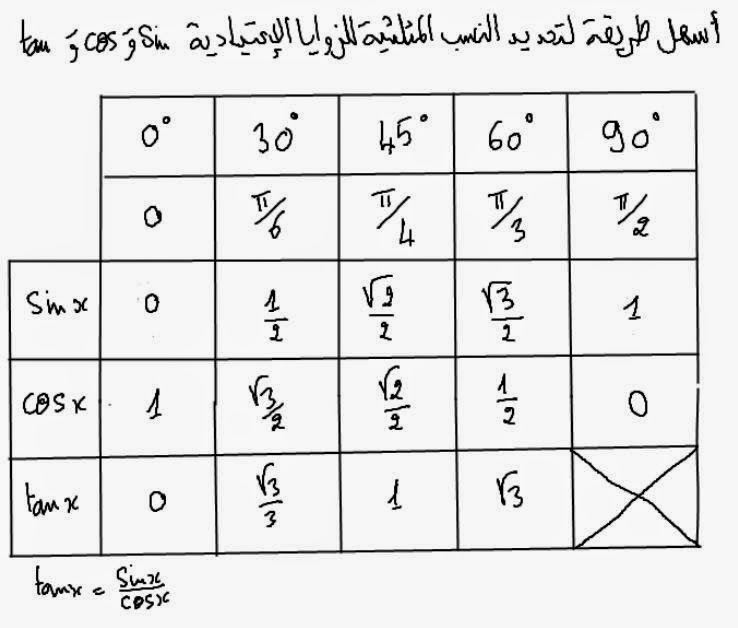 أسهل طريقة لتحديد النسب المثلثية للزوايا الإعتيادية sin وَ cos وَ tan
0° 30° 45° 60° 90°
0 π/6 π/4 π/3 π/2
Sin x 0 1/2 √2/2 √3/2 1
cos x 1 √3/2 √2/2 1/2 0
tan x 0 √3/3 1 √3
tan x = Sin x/cos x